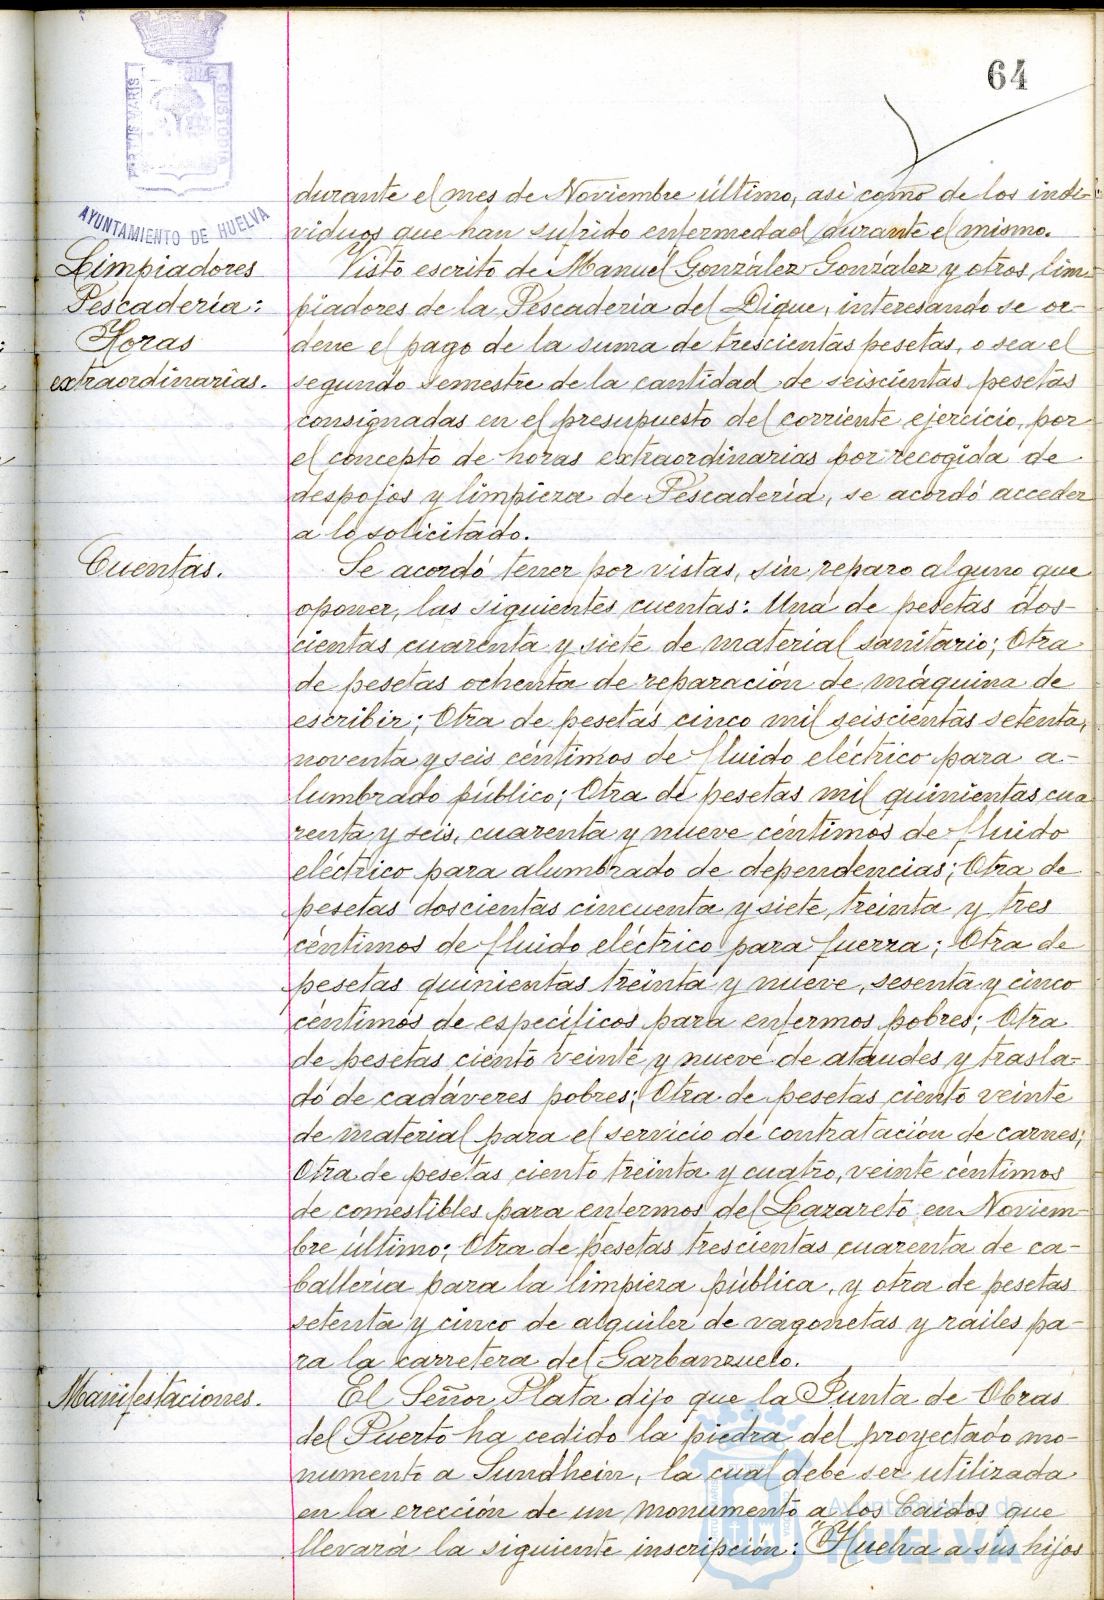 64
PORTUS MARIS
CUSTODIA
AYUNTAMIENTO DE HUELVA
durante el mes de Noviembre último, asi como de los indi-
viduos que han sufrido enfermedad durante el mismo.
Limpiadores
Pescadería:
Horas
extraordinarias.
Visto escrito de Manuel González González y otros, lim-
piadores de la Pescadería del Dique, interesando se or-
dene el pago de la suma de trescientas pesetas, o sea el
segundo semestre de la cantidad de seiscientas pesetas
consignadas en el presupuesto del corriente ejercicio, por
el concepto de horas extraordinarias por recogida de
despojos y limpieza de Pescadería, se acordó acceder
a lo solicitado.
Cuentas.
Se acordó tener por vistas, sin reparo alguno que
oponer, las siguientes cuentas: Una de pesetas dos-
cientas cuarenta y siete de material sanitario; Otra
de pesetas ochenta de reparación de máquina de
escribir; Otra de pesetas cinco mil seiscientas setenta,
noventa y seis céntimos de fluido eléctrico para a-
lumbrado público; Otra de pesetas mil quinientas cua
renta y seis, cuarenta y nueve céntimos de fluido
eléctrico para alumbrado de dependencias; Otra de
pesetas doscientas cincuenta y siete, treinta y tres
céntimos de fluido eléctrico para fuerza; Otra de
pesetas quinientas treinta y nueve, sesenta y cinco
céntimos de específicos para enfermos pobres; Otra
de pesetas ciento veinte y nueve de ataudes y trasla-
do de cadáveres pobres; Otra de pesetas ciento veinte
de material para el servicio de contratación de carnes;
Otra de pesetas ciento treinta y cuatro, veinte céntimos
de comestibles para enfermos del Lazareto en Noviem-
bre último; Otra de pesetas trescientas cuarenta de ca-
ballería para la limpieza pública, y otra de pesetas
setenta y cinco de alquiler de vagonetas y railes pa-
ra la carretera del Garbanzuelo.
Manifestaciones.
El Señor Plata dijo que la Junta de Obras
del Puerto ha cedido la piedra del proyectado mo-
numento a Sundhein, la cual debe ser utilizada
en la erección de un monumento a los Caidos que
llevará la siguiente inscripción: "Huelva a sus hijos
Ayuntamiento de
HUELVA